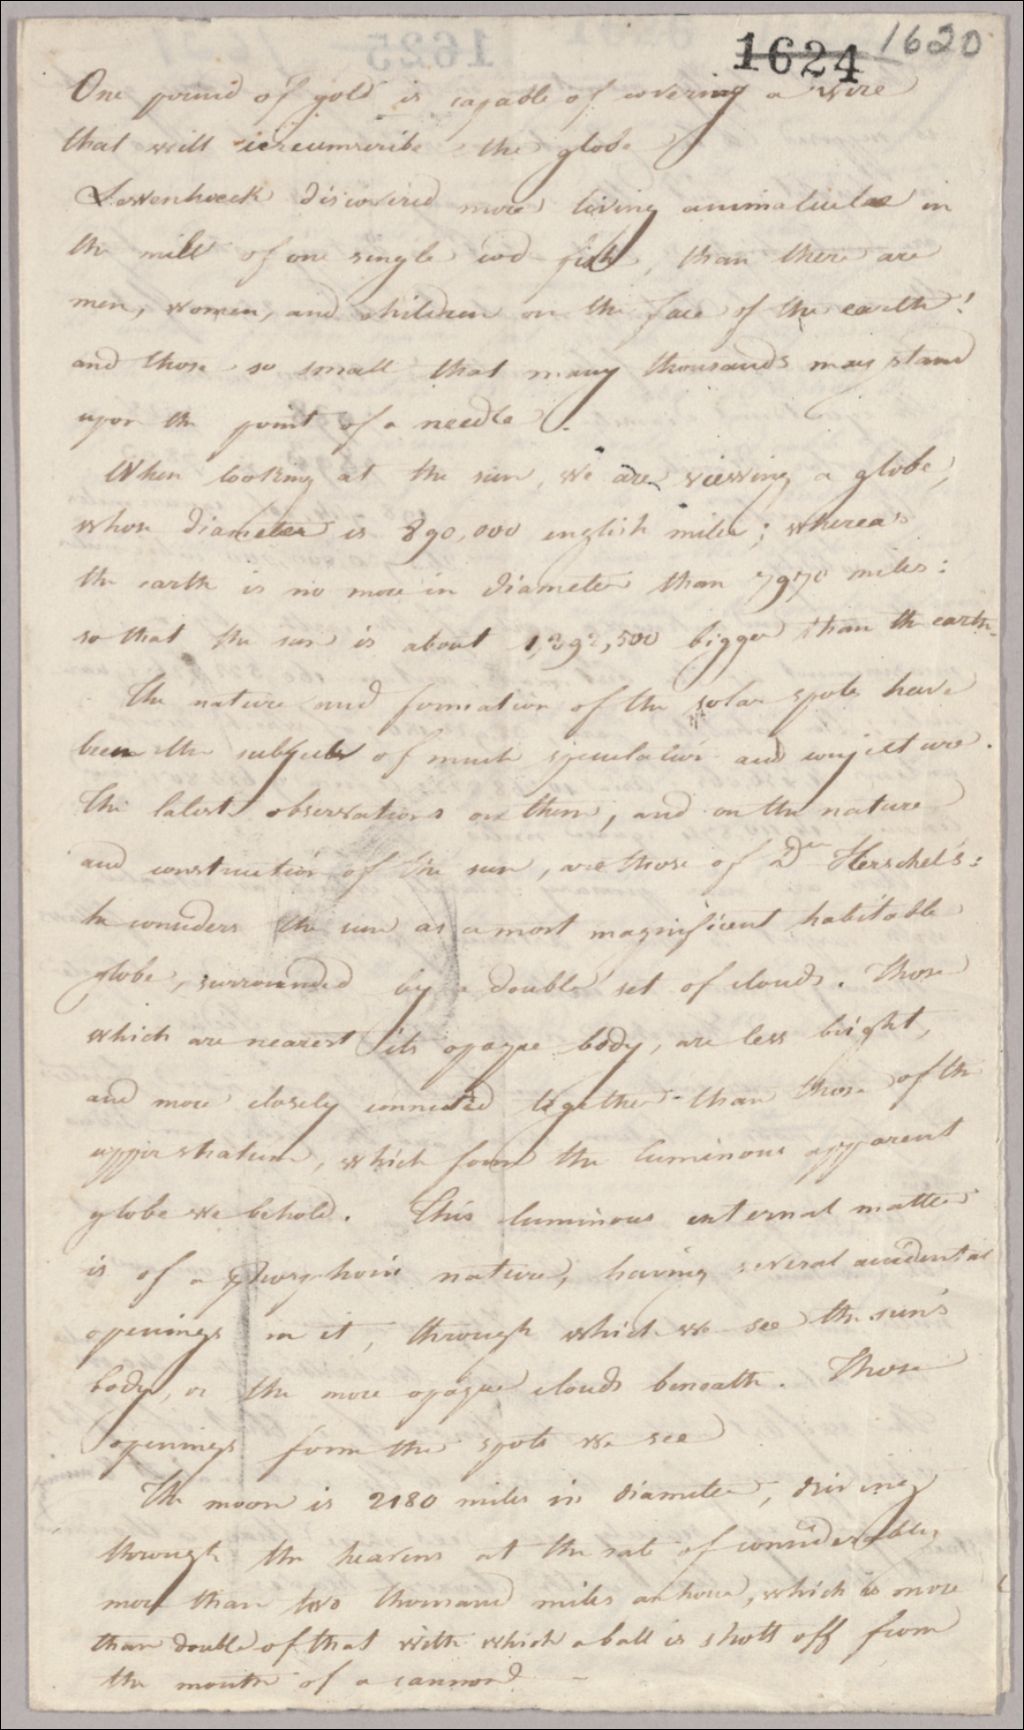 1624 1620
One pound of gold is capable of covering a wire
that will circumscribe the globe
Lewenhoeck discovered more living animalculae in
the milt of one single cod-fish, than there are
men, women, and children on the face of the earth!
and those so small that many thousands may stand
upon the point of a needle.
When looking at the sun, we are viewing a globe,
whose diameter is 890,000 english miles; whereas
the earth is no more in diameter than 7970 miles:
so that the sun is about 1,392,500 bigger than the earth.
The nature and formation of the solar spots have
been the subjects of much speculation and conjecture.
The latest observations on them, and on the nature
and construction of the sun, are those of Dr Herschel's:
he considers the sun as a most magnificent habitable
globe, surrounded by a double set of clouds. Those
which are nearest its opaque body, are less bright,
and more closely connected together than those of the
upper stratum, which form the luminous apparent
globe we behold. This luminous external matter
is of a phosphoric nature, having several accidental
openings in it, through which we see the sun's
body, or the more opaque clouds beneath. Those
openings form the spots we see
The moon is 2180 miles in diameter, driving
through the heavens at the rate of considerably
more than two thousand miles an hour, which is more
than double of that with which a ball is shott off from
the mouth of a cannon.